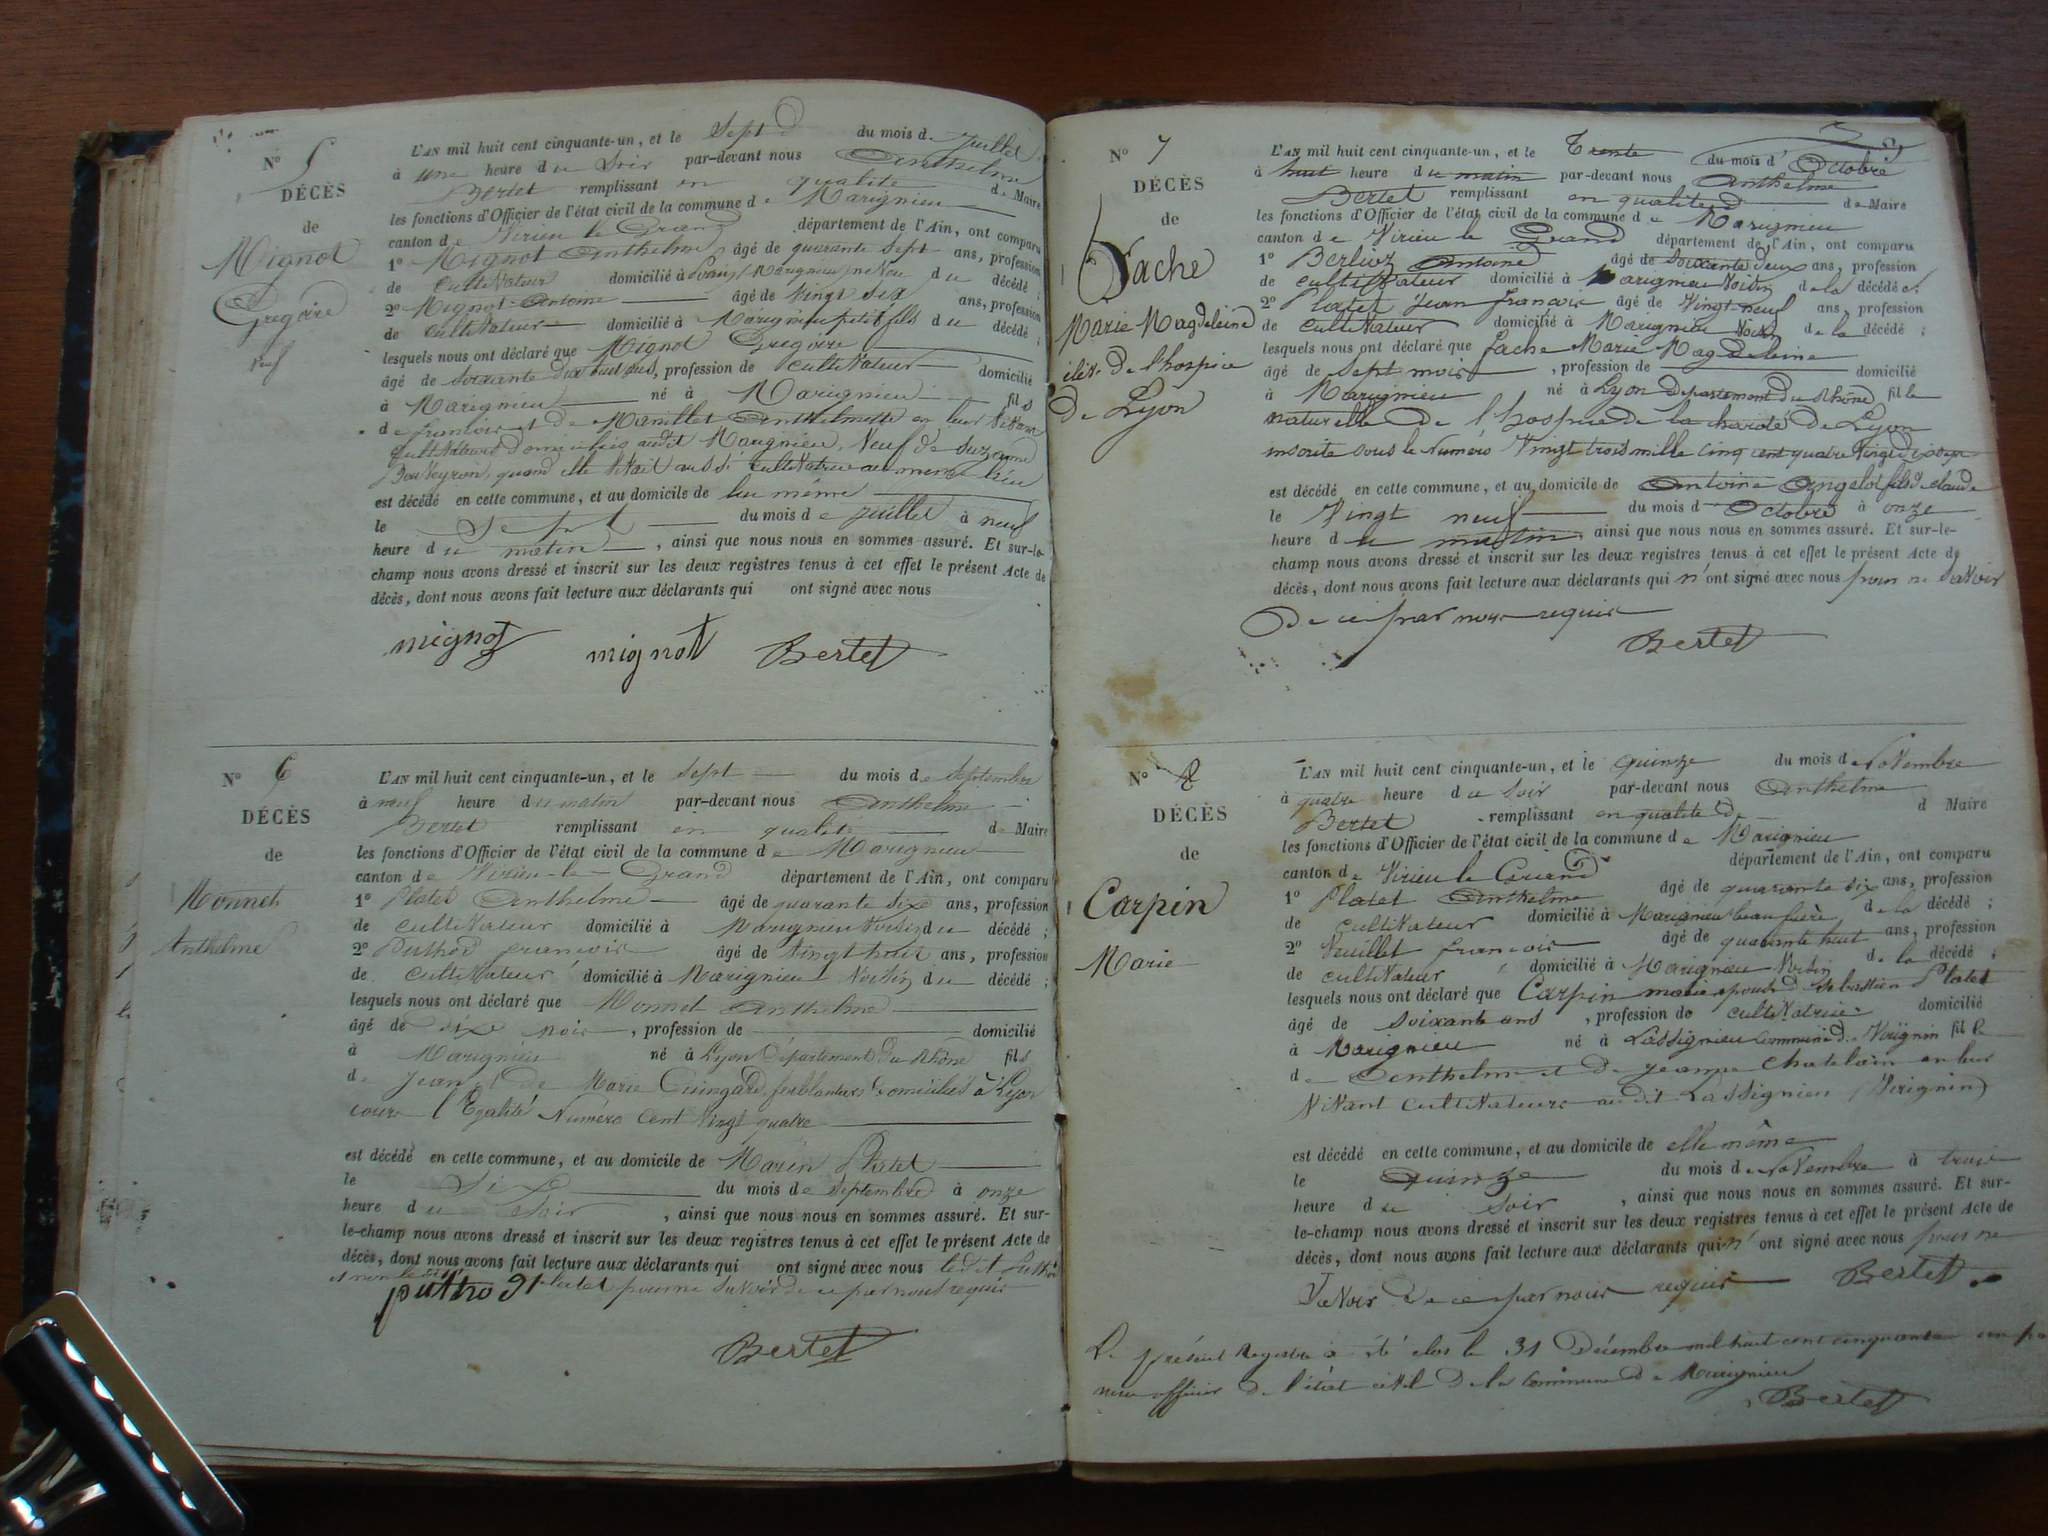 N° 5
DÉCÈS
de
Mignot
Gregoire
Veuf
L'AN mil huit cent cinquante-un, et le Sept du mois de Juillet
à une heure du Soir par-devant nous Anthelme
Bertet remplissant en qualité de Maire
les fonctions d'Officier de l'état civil de la commune de Marignieu
canton de Virieu le Grand département de l'Ain, ont comparu
1° Mignot Anthelme âgé de quarante sept ans, profession
de cultivateur domicilié à Marignieu neveu du décédé ;
2° Mignot Antoine âgé de Vingt six ans, profession
de cultivateur domicilié à Marignieu petit fils du décédé ;
lesquels nous ont déclaré que Mignot Gregoire
âgé de Soixante dix huit ans, profession de cultivateur domicilié
à Marignieu né à Marignieu fils
de francois et de Manillet Anthelmette en leur Vivant
cultivateurs domiciliés audit Marignieu, Veuf de Suzanne
Bouveyron, quand elle Vivait aussi cultivatrice au meme lieu
est décédé en cette commune, et au domicile de lui même
le Sept du mois de juillet à neuf
heure du matin, ainsi que nous nous en sommes assuré. Et sur-le-
champ nous avons dressé et inscrit sur les deux registres tenus à cet effet le présent Acte de
décès, dont nous avons fait lecture aux déclarants qui ont signé avec nous
mignot mignot Bertet
N° 6
DÉCÈS
de
Monnet
Anthelme
L'AN mil huit cent cinquante-un, et le sept du mois de Septembre
à neuf heure du matin par-devant nous Anthelme
Bertet remplissant en qualité de Maire
les fonctions d'Officier de l'état civil de la commune de Marignieu
canton de Virieu-le-Grand département de l'Ain, ont comparu
1° Platet Anthelme âgé de quarante sixe ans, profession
de cultivateur domicilié à Marignieu Voisin du décédé ;
2° Puthod francois âgé de Vingt huit ans, profession
de cultivateur domicilié à Marignieu Voisin du décédé ;
lesquels nous ont déclaré que Monnet Anthelme
âgé de dixe mois, profession de domicilié
à Marignieu né à Lyon Département du Rhône fils
de Jean et de Marie Guingard, ferblantiers domiciliés à Lyon
cours l'Egalité Numéro Cent Vingt quatre
est décédé en cette commune, et au domicile de Marin Platet
le Six du mois de septembre à onze
heure du Soir, ainsi que nous nous en sommes assuré. Et sur-
le-champ nous avons dressé et inscrit sur les deux registres tenus à cet effet le présent Acte de
décès, dont nous avons fait lecture aux déclarants qui ont signé avec nous ledit Puthod
et non ledit Platet pour ne Savoir de ce par nous requis
puthod
Bertet
N° 7
DÉCÈS
de
Fache
Marie Magdeleine
élève de l'hospice
de Lyon
L'AN mil huit cent cinquante-un, et le Trente du mois d'Octobre
à huit heure du matin par-devant nous Anthelme
Bertet remplissant en qualité de Maire
les fonctions d'Officier de l'état civil de la commune de Marignieu
canton de Virieu le Grand département de l'Ain, ont comparu
1° Berlioz Antoine âgé de soixante deux ans, profession
de cultivateur domicilié à Marignieu Voisin de la décédée.
2° Platet Jean francois âgé de Vingt-neuf ans, profession
de cultivateur domicilié à Marignieu Voisin de la décédé ;
lesquels nous ont déclaré que fache Marie Magdeleine
âgé de sept mois, profession de domicilié
à Marignieu né à Lyon Departement du Rhône fille
naturelle de l'hospice de la charité de Lyon
inscrite sous le Numéro Vingt trois mille cinq cent quatre Vingt
est décédé en cette commune, et au domicile de Antoine Angelot fils de claude
le Vingt neuf du mois d'Octobre à onze
heure du matin ainsi que nous nous en sommes assuré. Et sur-le-
champ nous avons dressé et inscrit sur les deux registres tenus à cet effet le présent Acte de
décès, dont nous avons fait lecture aux déclarants qui n'ont signé avec nous pour ne Savoir
de ce par nous requis
Bertet
N° 8
DÉCÈS
de
Carpin
Marie
L'AN mil huit cent cinquante-un, et le quinze du mois de Novembre
à quatre heure du soir par-devant nous Anthelme
Bertet remplissant en qualité de d Maire
les fonctions d'Officier de l'état civil de la commune de Marignieu
canton de Virieu le Grand département de l'Ain, ont comparu
1° Platet Anthelme âgé de quarante six ans, profession
de cultivateur domicilié à Marignieu beau frère de la décédé ;
2° Veuillet francois âgé de quarante huit ans, profession
de cultivateur domicilié à Marignieu Voisin de la décédé ;
lesquels nous ont déclaré que Carpin marie epouse d Sebastien Platet
âgé de soixante ans, profession de cultivatrice domicilié
à Marignieu né à Lassignieu Commune de Virignin fille
de Anthelme et de Jeanne Chatelain en leur
Vivant cultivateurs audit Lassignieu (Virignin)
est décédé en cette commune, et au domicile de elle même
le Quinze du mois de Novembre à trois
heure du soir, ainsi que nous nous en sommes assuré. Et sur-
le-champ nous avons dressé et inscrit sur les deux registres tenus à cet effet le présent Acte de
décès, dont nous avons fait lecture aux déclarants qui n'ont signé avec nous pour ne
Savoir de ce par nous requis Bertet
Le présent Registre a été clos le 31 Décembre mil huit cent cinquante un par
nous officier de l'état civil de la Commune de Marignieu
Bertet